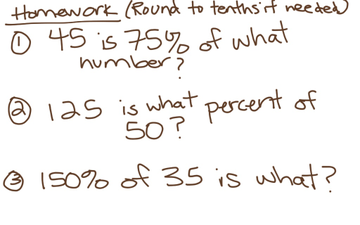 Homework (Round to tenths if needed)
① 45 is 75% of what
number?
② 125 is what percent of
50?
③ 150% of 35 is what?